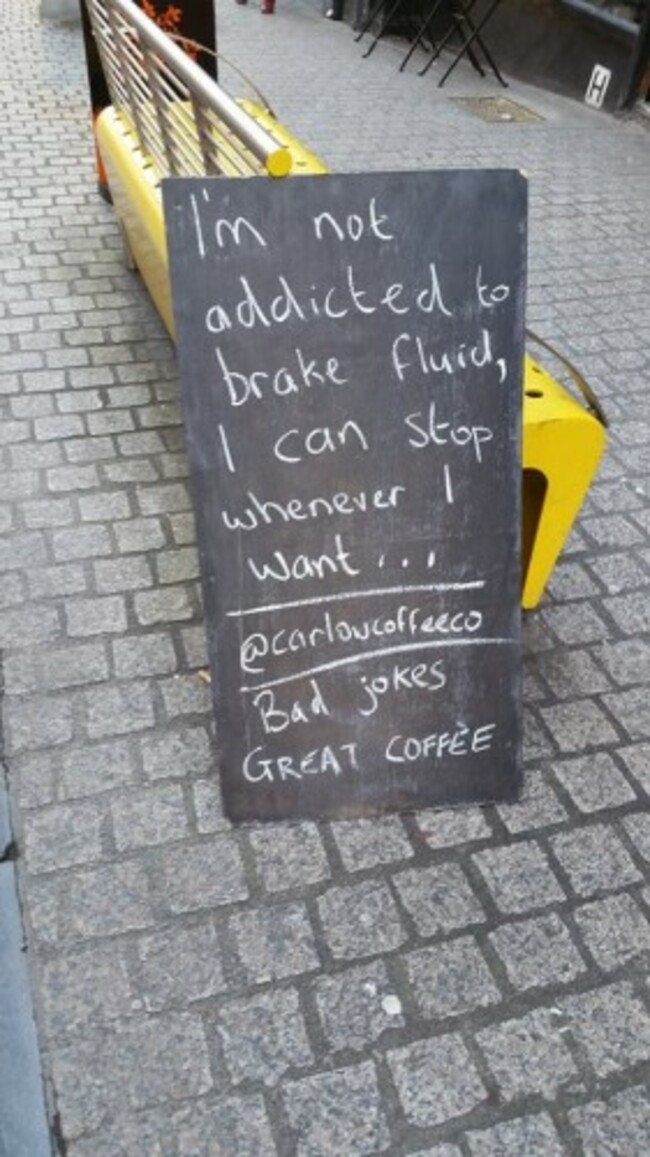 I'm not
addicted to
brake fluid,
I can stop
whenever I
want...
@carlowcoffeeco
Bad jokes
GREAT COFFEE
H